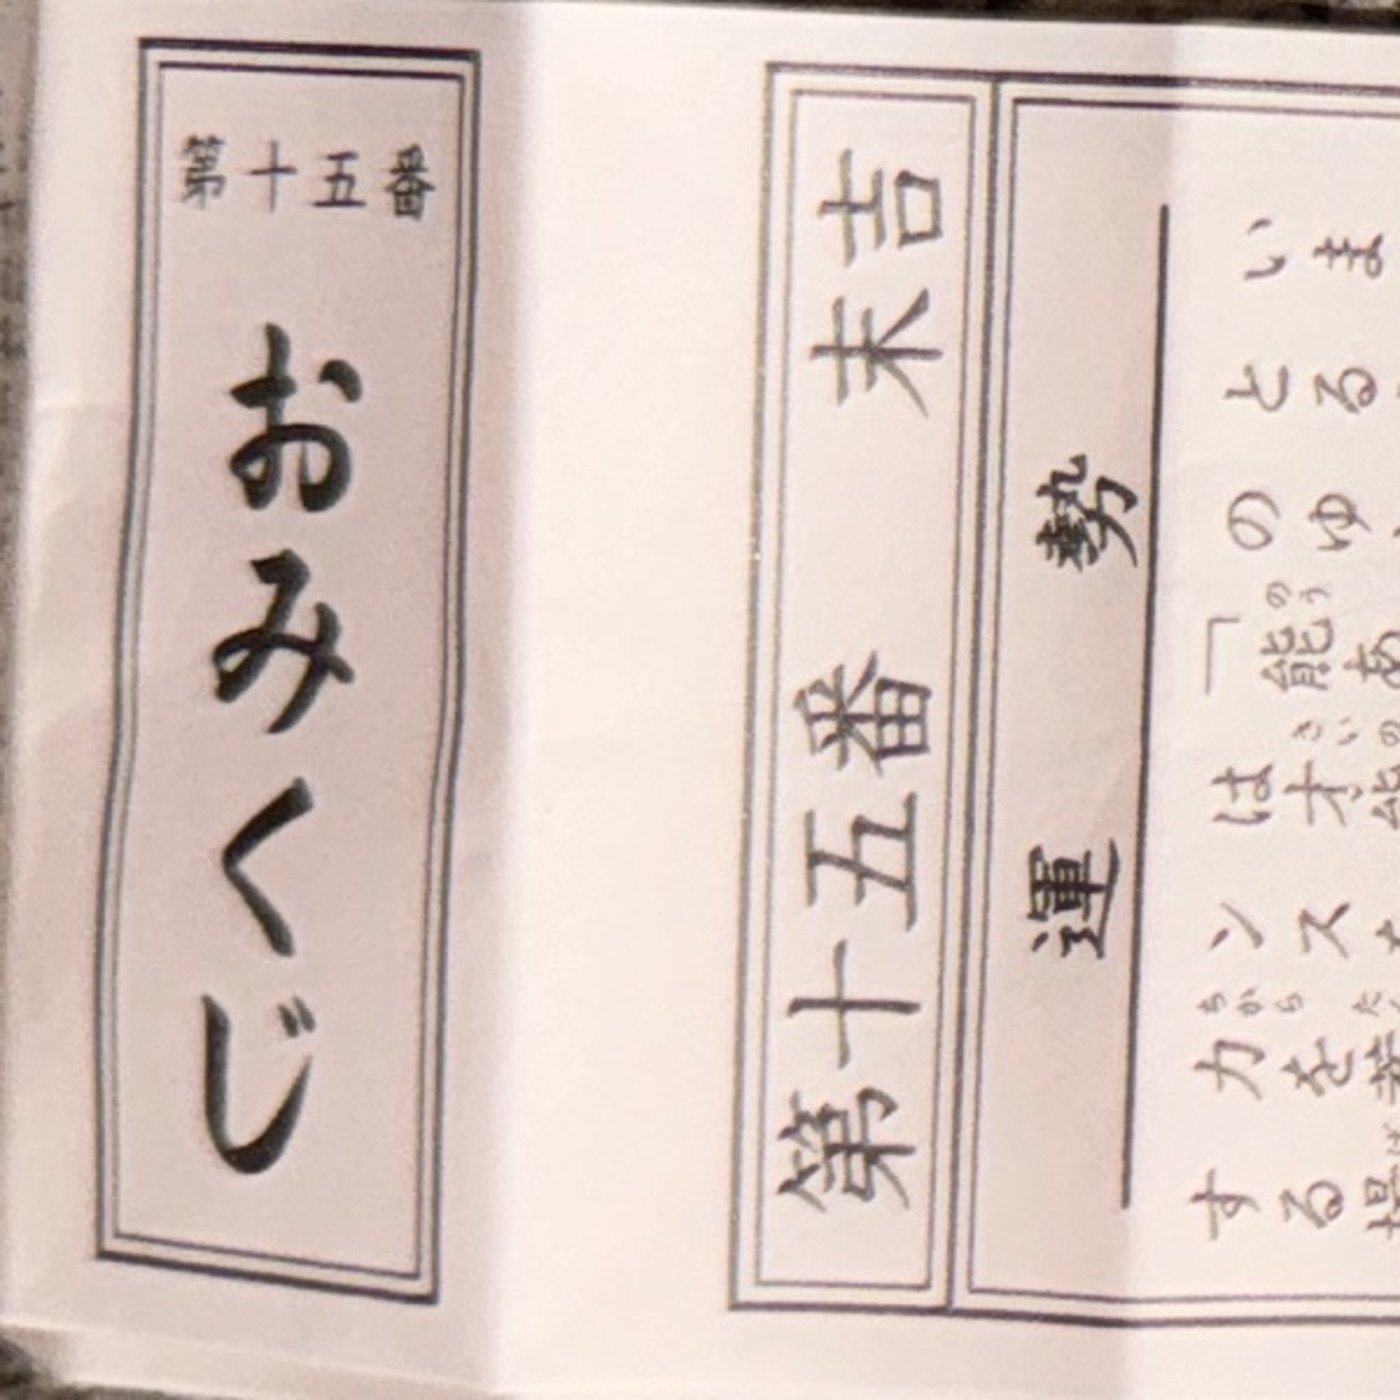 第十五番
おみくじ
第十五番 末吉
運勢
いま
とる
のゆ
「能あ
は才能
ンス
力を
する場